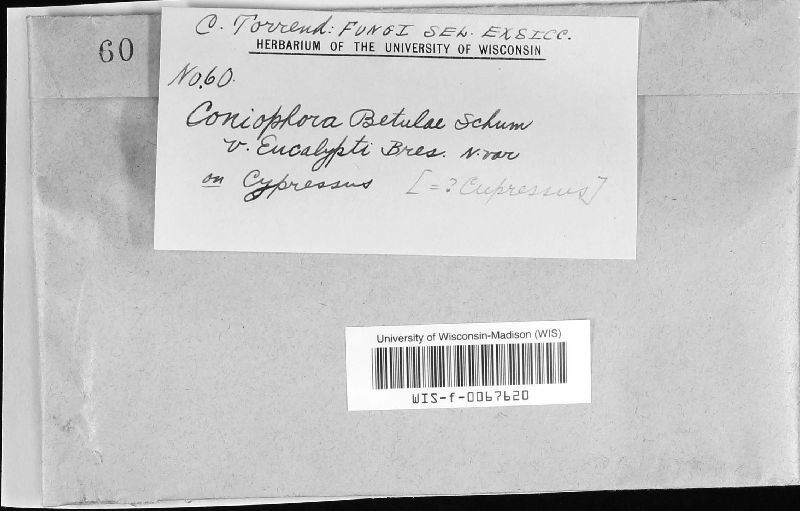 60
C. Torrend: FUNGI SEL. EXSICC.
HERBARIUM OF THE UNIVERSITY OF WISCONSIN
No. 60.
Coniophora Betulae Schum
v. Eucalypti Bres. N. var
on Cypressus [=? Cupressus]
University of Wisconsin-Madison (WIS)
WIS-f-0067620